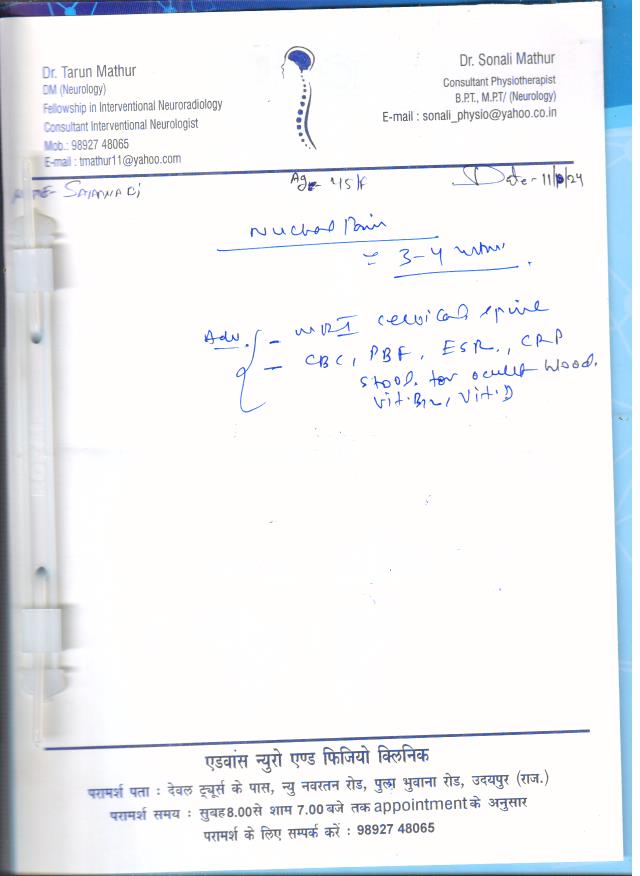 Dr. Tarun Mathur
DM (Neurology)
Fellowship in Interventional Neuroradiology
Consultant Interventional Neurologist
Mob.: 98927 48065
E-mail : tmathur11@yahoo.com
Dr. Sonali Mathur
Consultant Physiotherapist
B.P.T., M.P.T/ (Neurology)
E-mail : sonali_physio@yahoo.co.in
Age- 45/F
Date- 11/
Nuchal Pain
3-4
Adv. - MRI cervical spine
- CBC, PBF, ESR, CRP
stool for occult blood.
Vit.B12, Vit.D
एडवांस न्युरो एण्ड फिजियो क्लिनिक
परामर्श पता : देवल ट्यूर्स के पास, न्यु नवरतन रोड, पुला भुवाना रोड, उदयपुर (राज.)
परामर्श समय : सुबह 8.00 से शाम 7.00 बजे तक appointment के अनुसार
परामर्श के लिए सम्पर्क करें : 98927 48065